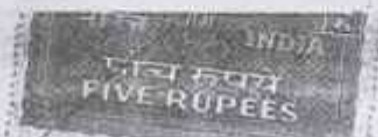 INDIA
पांच रुपये
FIVE RUPEES